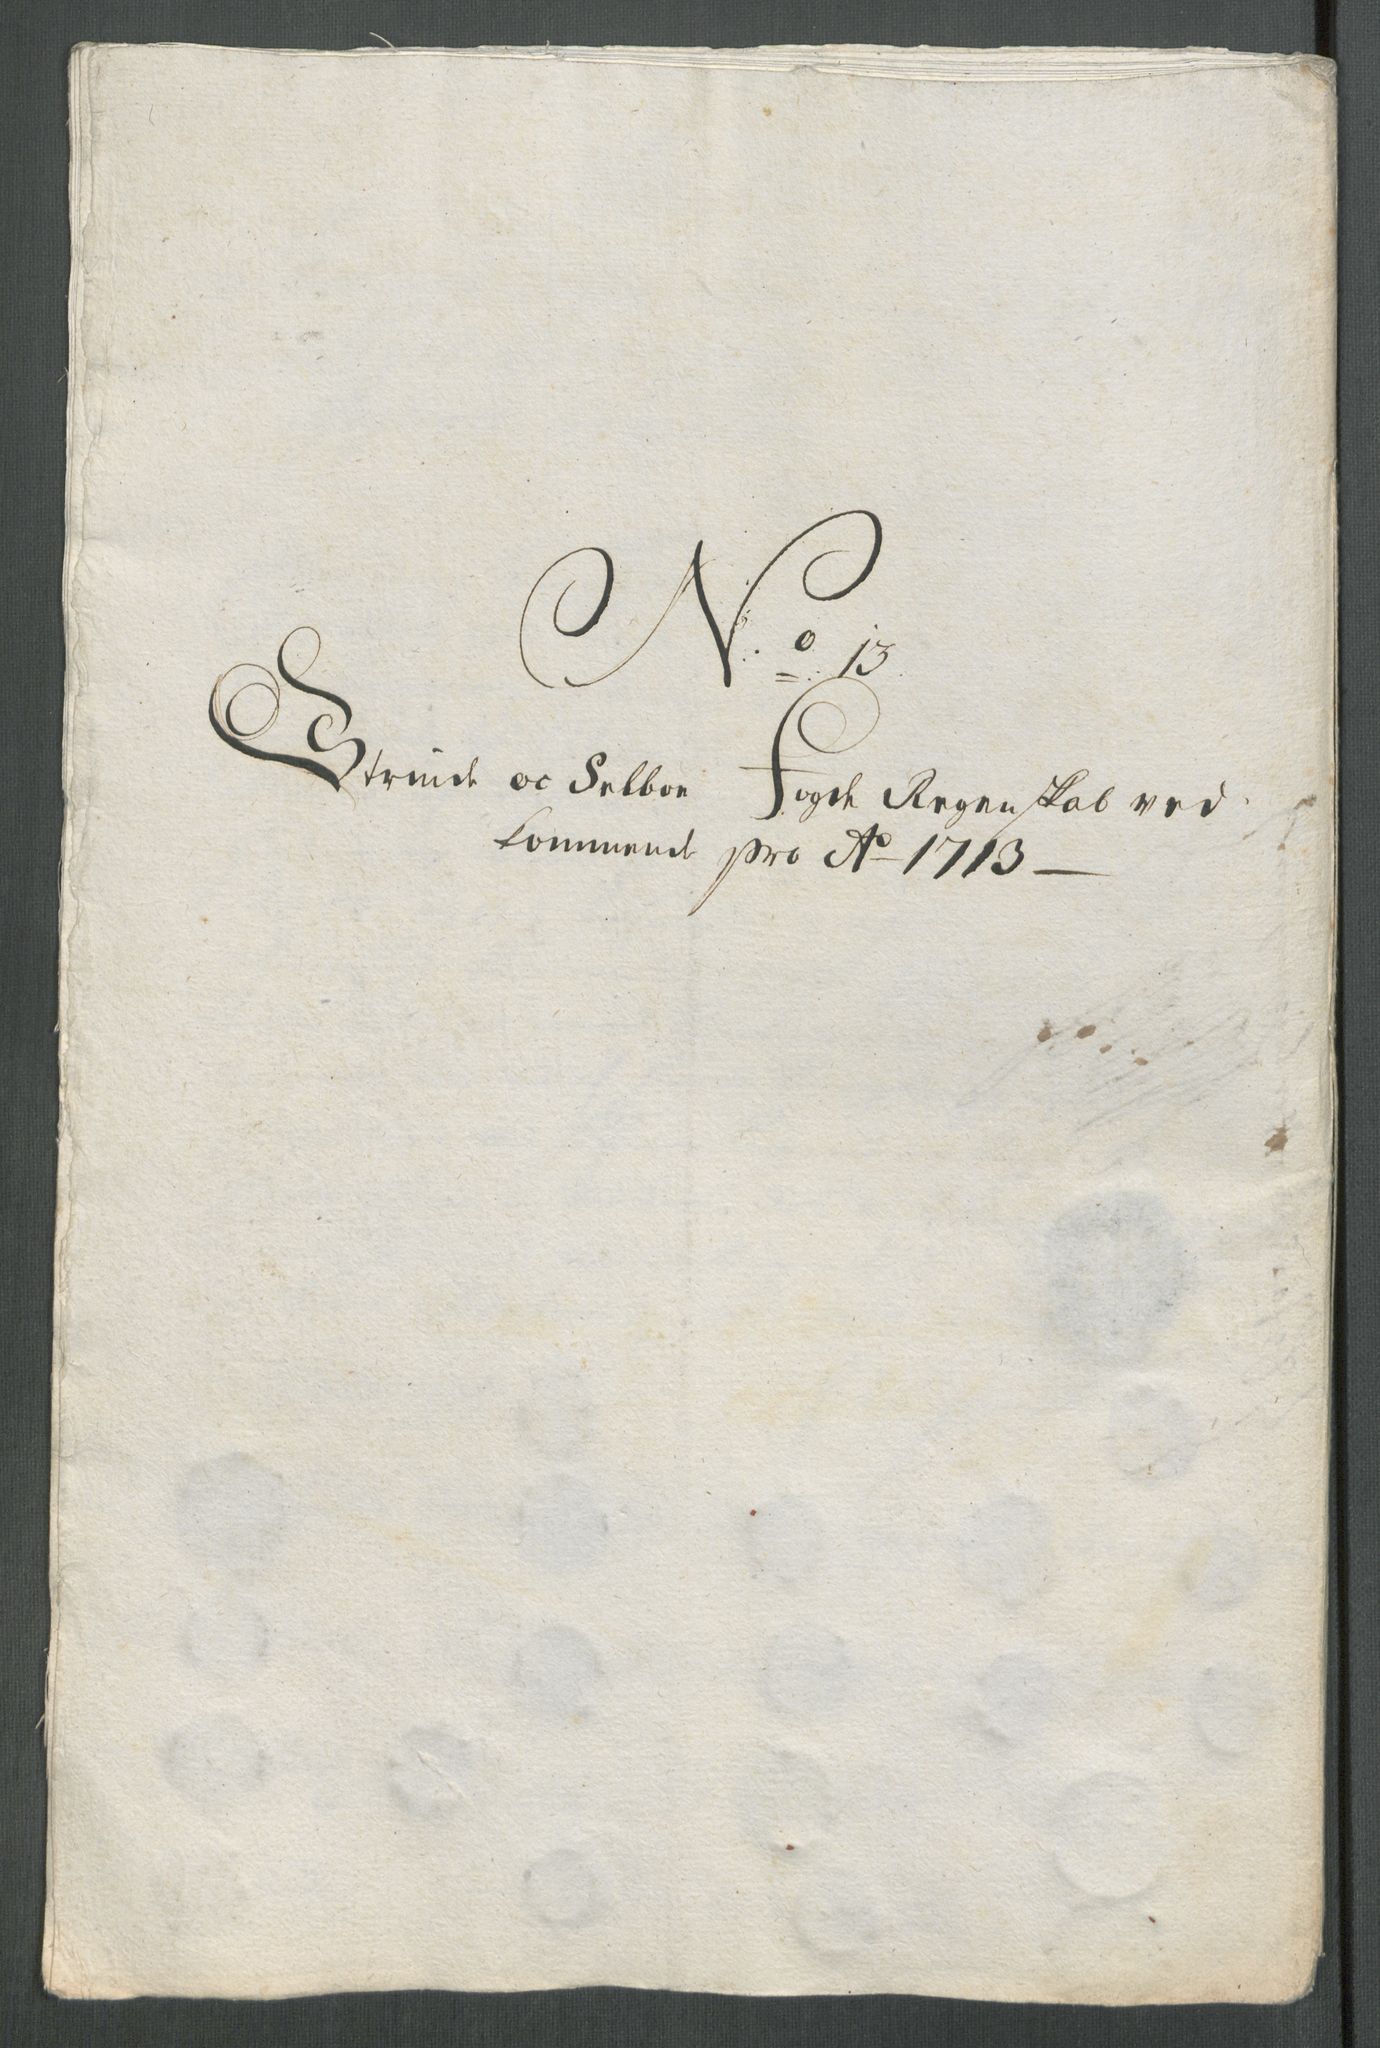 No 13
Strinde oc Selboe Fogde Regenskab ved
kommende pro Ao 1713